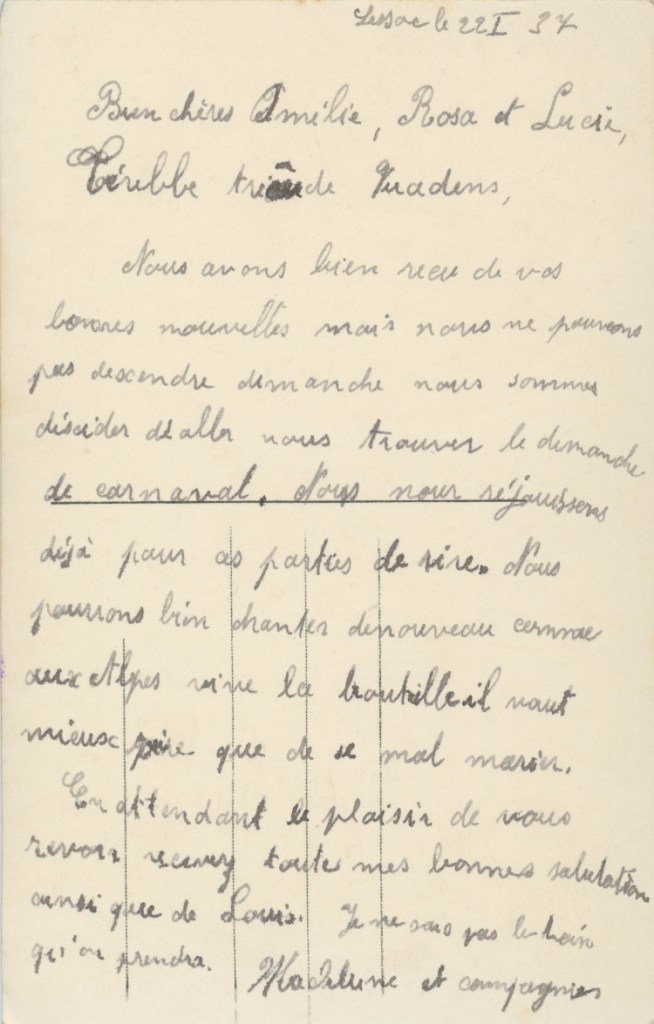 Lussac le 22 I 37
Bien chères Amélie, Rosa et Lucie,
Cérèbbe de Vuadens,
Nous avons bien reçu de vos
bonnes nouvelles mais nous ne pouvons
pas descendre dimanche nous sommes
décider d'aller vous trouver le dimanche
de carnaval. Nous nous réjouissons
déjà pour ces parties de rire. Nous
pourrons bien chanter denouveau comme
aux Alpes vive la bouteille il vaut
mieux que de se mal marier.
En attendant le plaisir de vous
revoir recevez toute mes bonnes salutation
ainsi que de Louis. Je ne sais pas le train
qu'on prendra. Madeleine et compagnies